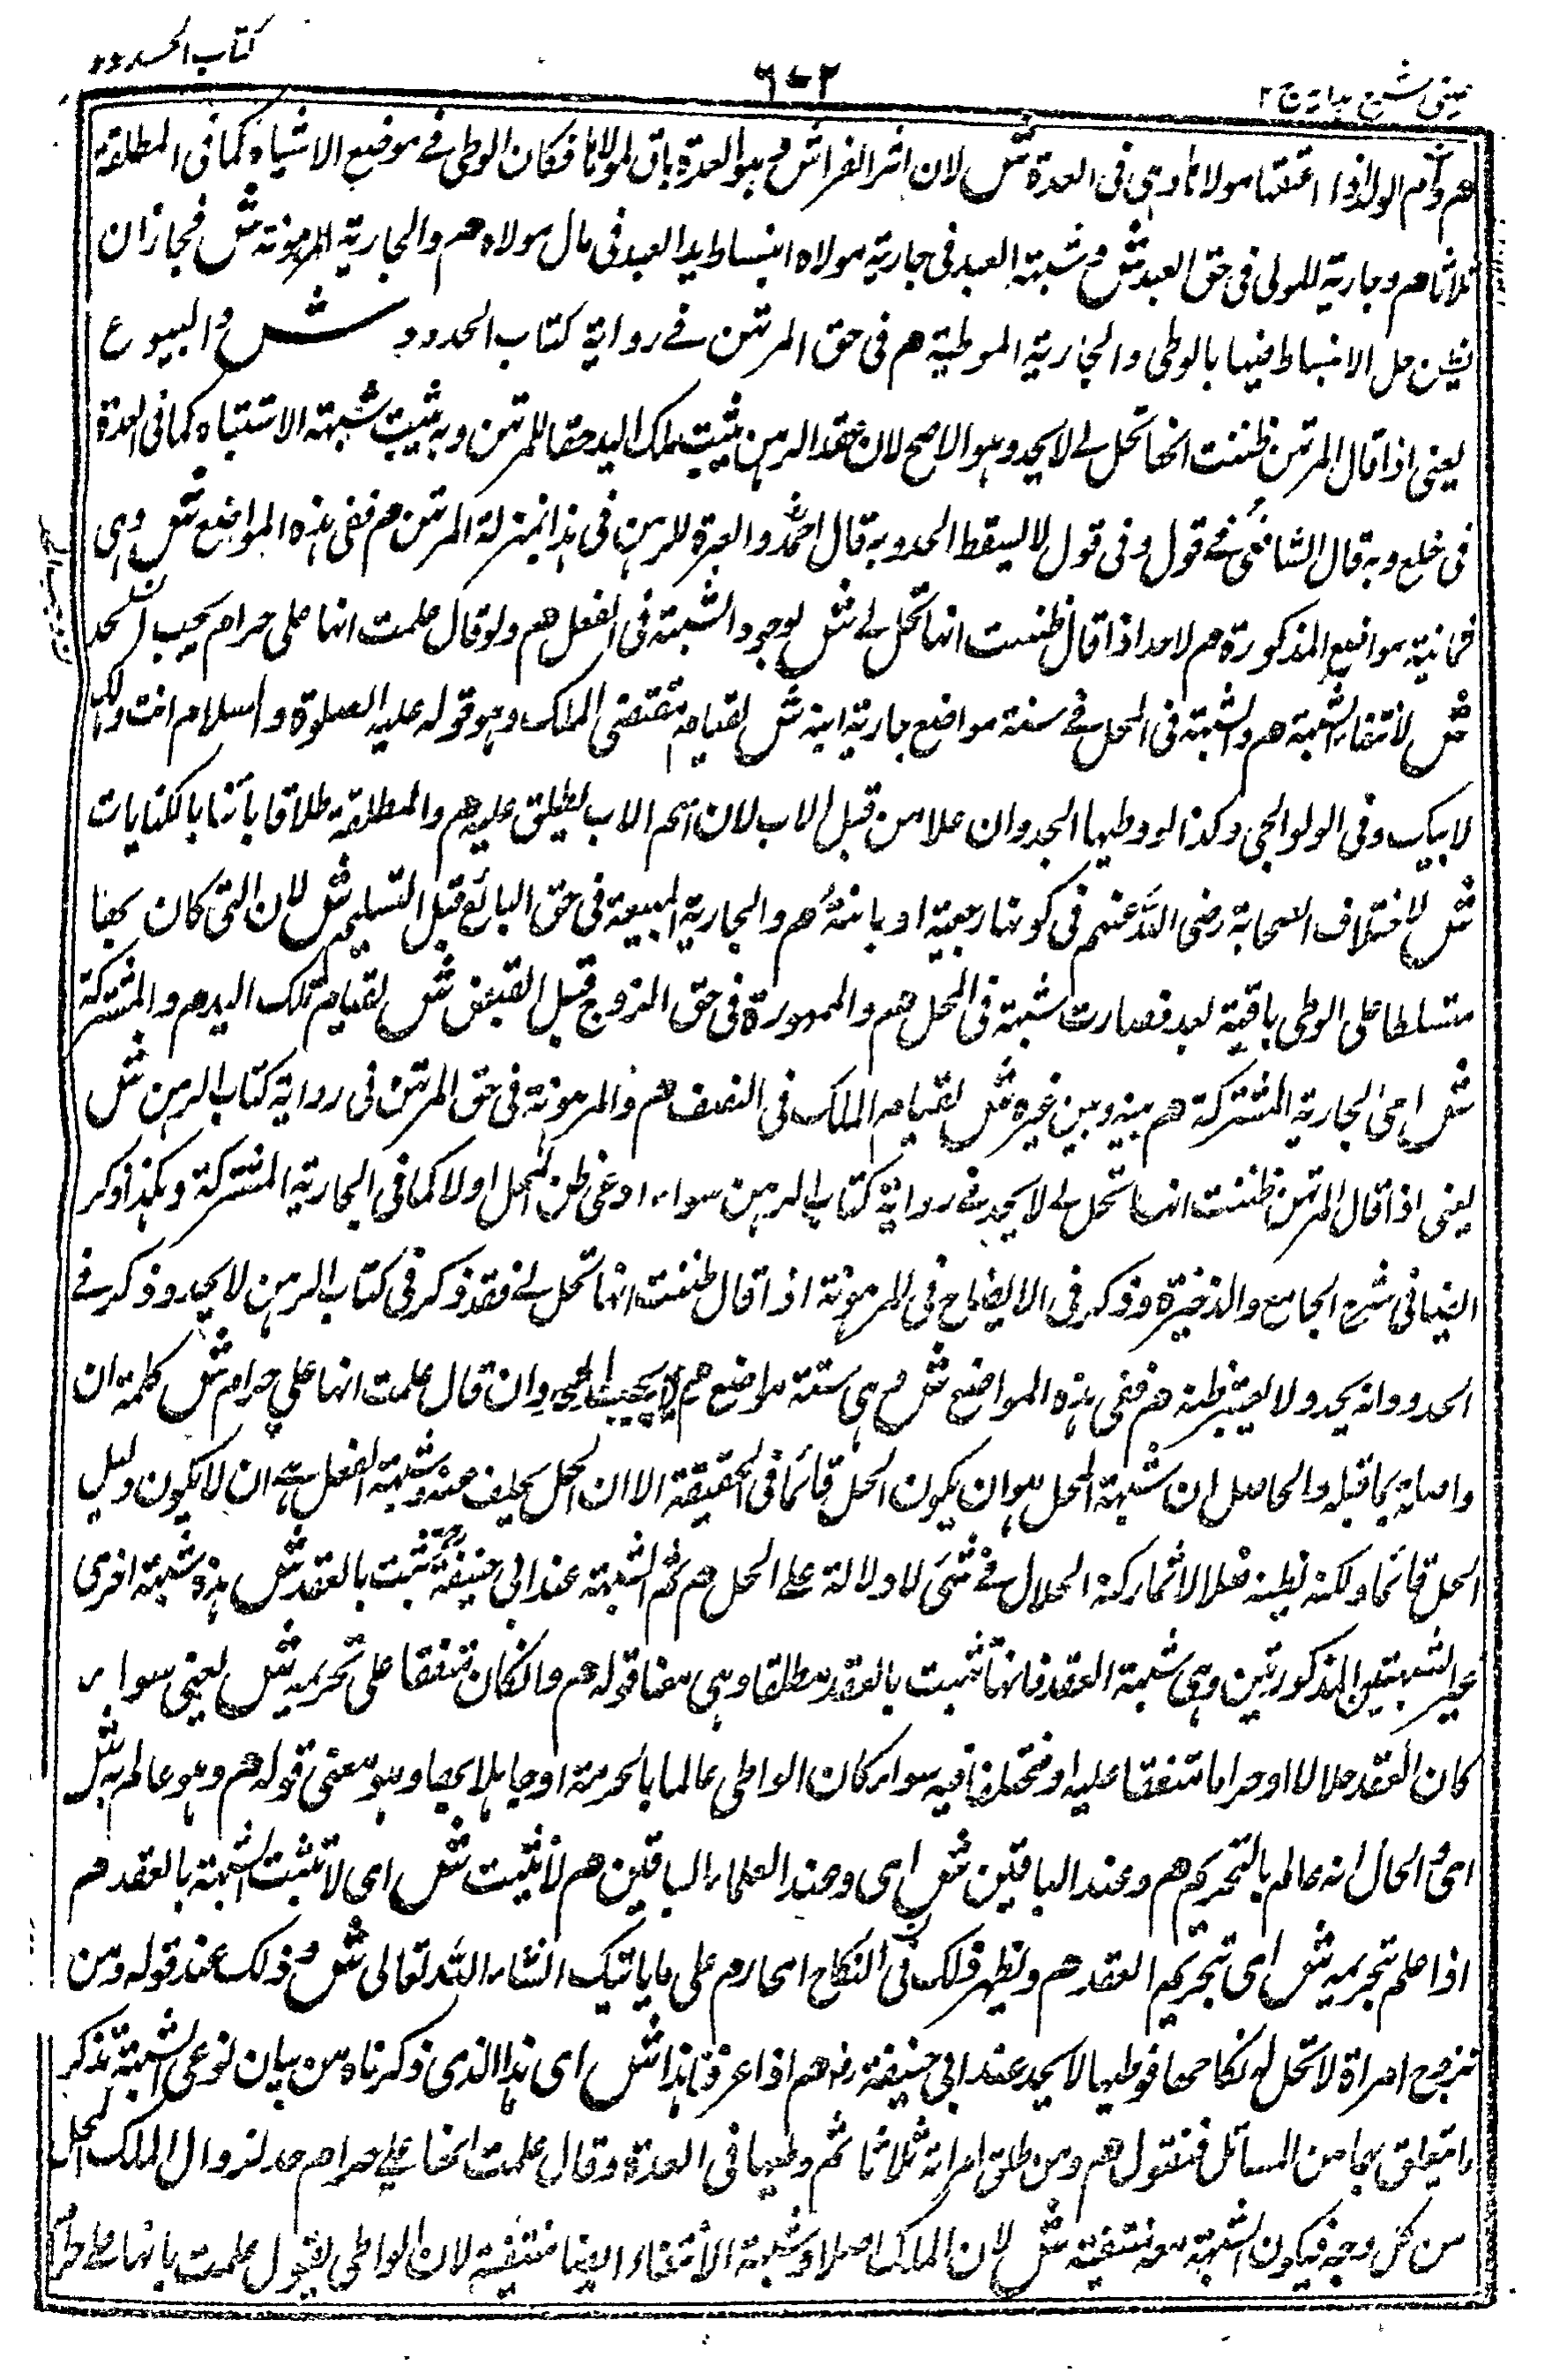 كتاب الحدود
٦٠٢
عينى شرح هداية ج ٢
هم وأم الولد اذا اعتقها مولاها وهى فى العدة ش لان اثر الفراش وهو العدة باق لمولاها فكان الوطى فے موضع الاشتباه كما فى المطلقة
ثلاثا هم وجارية المولى فى حق العبد ش وشبهة العبد فى جارية مولاه انبساط يد العبد فى مال مولاه هم والجارية المرهونة ش فجاز ان
يظن حل الانبساط فيها بالوطى والجارية الموطية هم فى حق المرتهن فے رواية كتاب الحدود ش والبيوع
يعنى اذا قال المرتهن ظننت انها تحل لے لا يحد وهو الاصح لان عقد الرهن يثبت ملك اليد حقا للمرتهن وبه يثبت شبهة الاشتباه كما فى العدة
فى خلع وبه قال الشافعى فے قول وفى قول لا يسقط الحد وبه قال احمد والعبرة للرهن فى هذا بمنزلة المرتهن هم ففى هذه المواضع ش وهى
ثمانية مواضع المذكورة هم لا حد اذا قال ظننت انها تحل لے ش لوجود الشبهة فى الفعل هم ولو قال علمت انها على حرام يجب الحد
ش لانتفاء الشبهة هم والشبهة فى المحل فے ستة مواضع جارية ابنه ش لقيام مقتضى الملك وهو قوله عليه الصلوة والسلام انت ومالك
لابيك وفى الولوالجى وكذا لو وطيها الجد وان علا من قبل الاب لان اسم الاب يطلق عليه هم والمطلقة طلاقا بائنا بالكنايات
ش لاختلاف الصحابة رضى الله عنهم فى كونها رجعية او بائنة هم والجارية المبيعة فى حق البائع قبل التسليم ش لان التى كان بها
متسلطا على الوطى باقية بعد فصارت شبهة فى المحل هم والممهورة فى حق الزوج قبل القبض ش لقيام ملك اليد هم والمشتركة
ش اى الجارية المشتركة هم بينه وبين غيره ش لقيام الملك فى النصف هم والمرهونة فى حق المرتهن فى رواية كتاب الرهن ش
يعنى اذا قال المرتهن ظننت انها تحل لے لا يحد فے رواية كتاب الرهن سواء ادعى ظن الحل اولا كما فى الجارية المشتركة وهكذا ذكر
ايضا فى شرح الجامع والذخيرة وذكر فى الايضاح فى المرهونة اذا قال ظننت انها تحل لے فقد ذكر فى كتاب الرهن لا يحد وذكر فے
الحدود انه يحد ولا يعتبر ظنه هم ففى هذه المواضع ش وهى ستة مواضع هم لا يجب الحد وان قال علمت انها على حرام ش كلمة ان
واصلة بما قبله والحاصل ان شبهة المحل هو ان يكون الحل قائما فى الحقيقة الا ان الحل يخلف عنه وشبهة الفعل هے ان لا يكون دليل
الحل قائما ولكنه يظنه حلالا لمشاركة الحلال فے شئ لا دلالة علے الحل هم ثم الشبهة عند ابى حنيفة رح تثبت بالعقد ش هذه شبهة اخرى
غير الشبهتين المذكورتين وهى شبهة العقد فانها تثبت بالعقد مطلقا وهى معنا قوله هم وان كان متفقا على تحريمه ش يعنى سواء
كان العقد حلالا او حراما متفقا عليه او مختلفا فيه سواء كان الواطى عالما بالحرمة او جاهلا بها وهو معنى قوله هم وهو عالم به ش
اى والحال انه عالم بالتحريم هم وعند الباقين ش اى وعند العلماء الباقين هم لا يثبت ش اى لا تثبت الشبهة بالعقد هم
اذا علم بتحريمه ش اى بتحريم العقد هم ويظهر ذلك فى النكاح المحارم على ما ياتيك انشاء الله تعالى ش وذلك عند قوله ومن
تزوج امراة لا تحل له نكاحها فوطيها لا يحد عند ابى حنيفة رح هم اذا عرفنا هذا ش اى هذا الذى ذكرناه من بيان نوعى الشبهة نذكر
ما يتعلق بها من المسائل فنقول هم ومن طلق امراته ثلاثا ثم وطيها فى العدة وقال علمت انها علے حرام حد لزوال الملك المحل
من كل وجه فيكون الشبهة معه منتفية ش لان الملك اصلا وشبهة الاشتباه ايضا منتفية لان الواطى يقول علمت بانها علے حرام